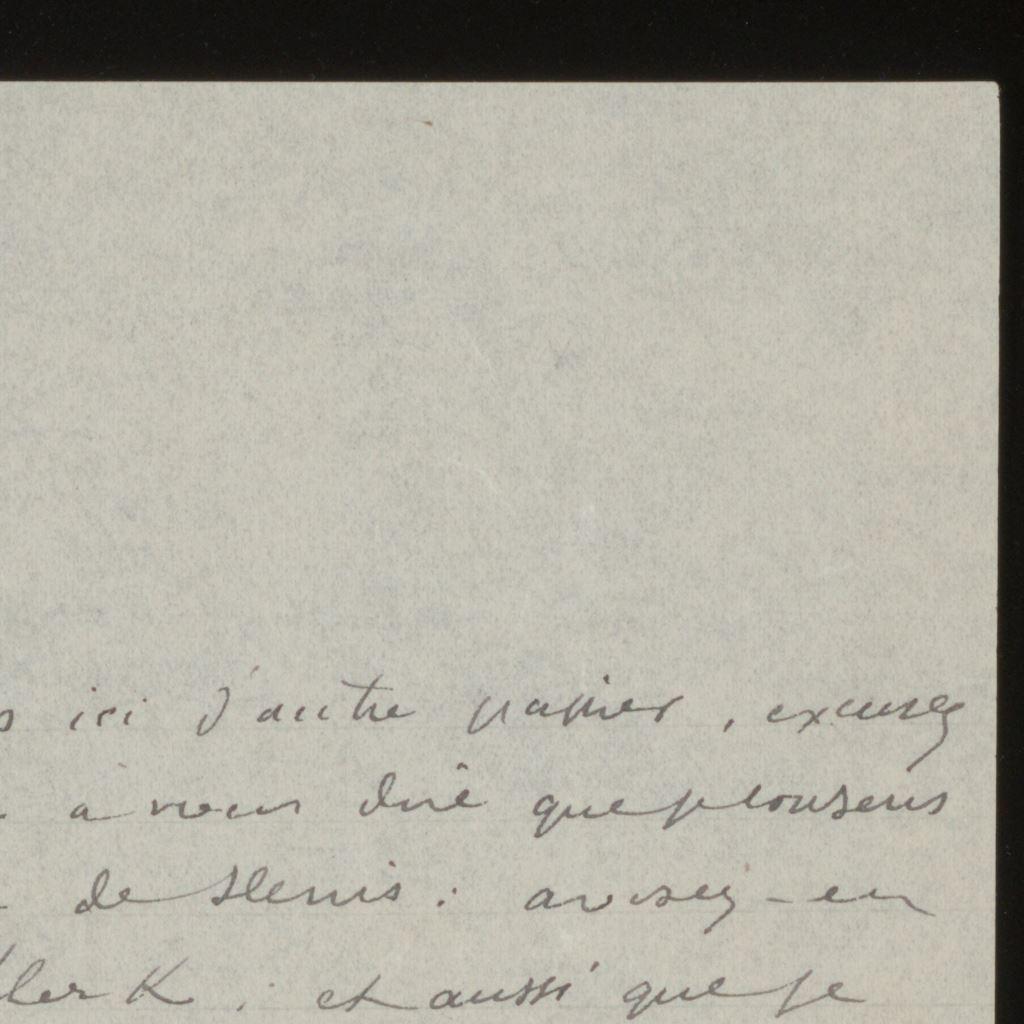 ici d'autre papier, excusez
à vous dire que plouseurs
de Slenis : avisez-en
ler K ; et aussi que je